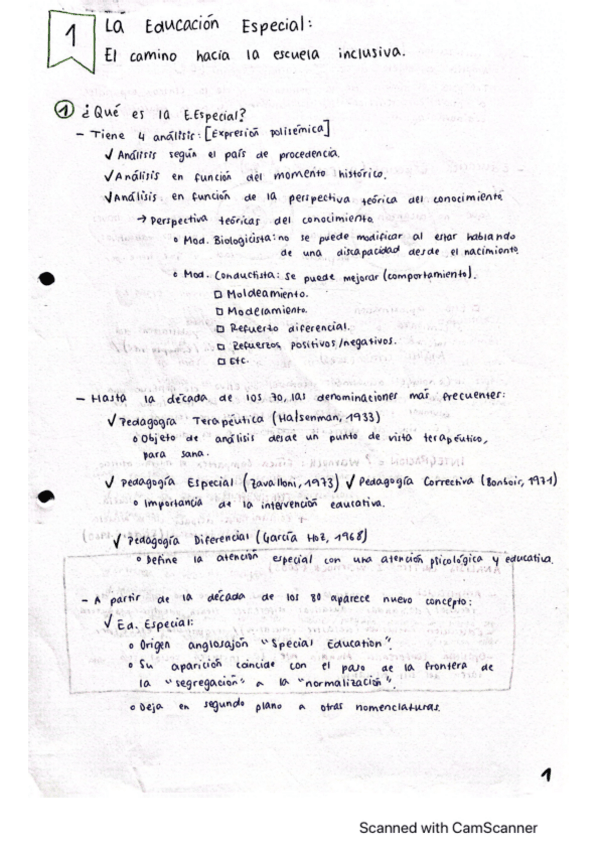 1
La Educación Especial:
El camino hacia la escuela inclusiva.
1 ¿Qué es la E.Especial?
- Tiene 4 análisis: [Expresión polisémica]
✓ Análisis según el país de procedencia.
✓ Análisis en función del momento histórico.
✓ Análisis en función de la perspectiva teórica del conocimiento
→ Perspectiva teóricas del conocimiento
o Mod. Biologicista: no se puede modificar al estar hablando
de una discapacidad desde el nacimiento
o Mod. Conductista: se puede mejorar (comportamiento).
□ Moldeamiento.
□ Modelamiento.
□ Refuerzo diferencial.
□ Refuerzos positivos/negativos.
□ Etc.
- Hasta la década de los 70, las denominaciones más frecuentes:
✓ Pedagogía Terapéutica (Halsenman, 1933)
o Objeto de análisis desde un punto de vista terapéutico,
para sana.
✓ Pedagogía Especial (Zavalloni, 1973) ✓ Pedagogía Correctiva (Bonboir, 1971)
o Importancia de la intervención educativa.
✓ Pedagogía Diferencial (García Hoz, 1968)
o Define la atención especial con una atención psicológica y educativa.
- A partir de la década de los 80 aparece nuevo concepto:
✓ Ed. Especial:
o Origen anglosajón "Special Education".
o Su aparición coincide con el paso de la frontera de
la "segregación" a la "normalización".
o Deja en segundo plano a otras nomenclaturas.
1
Scanned with CamScanner